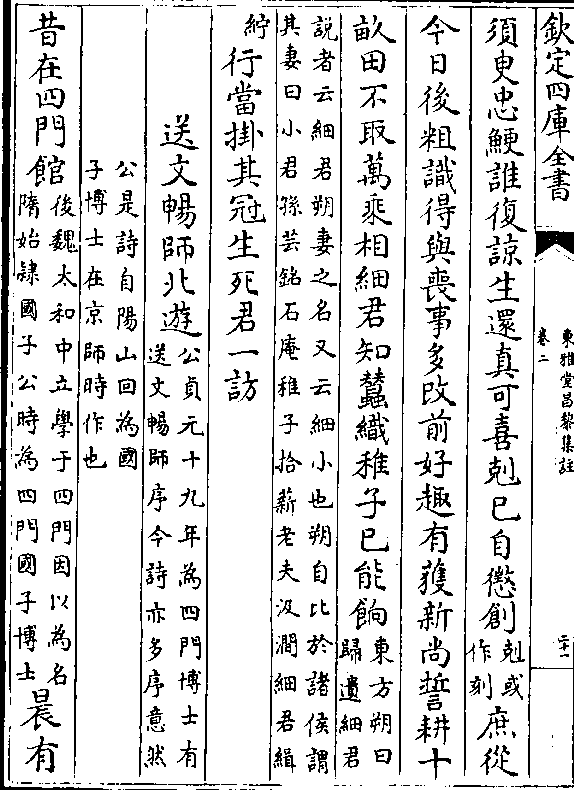 欽定四庫全書
東雅堂昌黎集註
卷二
二十一
須吏忠鯁誰復諒生還真可喜剋已自懲創剋或作刻庶從
今日後粗識得與喪事多改前好趣有獲新尚誓耕十
畝田不取萬乗相細君知蠶織稚子已能餉東方朔曰歸遺細君
説者云細君朔妻之名又云細小也朔自比於諸侯謂
其妻曰小君孫芸銘石庵稚子拾薪老夫汲澗細君緝
紵行當掛其冠生死君一訪
送文暢師北遊公貞元十九年為四門博士有送文暢師序今詩亦多序意然
公是詩自陽山回為國
子博士在京師時作也
昔在四門館後魏太和中立學于四門因以為名隋始隷國子公時為四門國子博士晨有